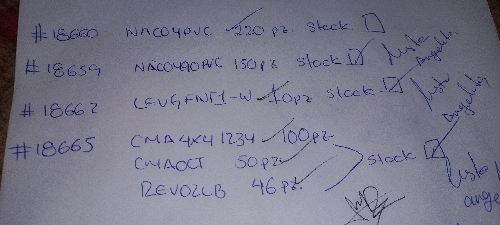 #18660 NACO4PVC 220 pz. Stock
#18659 NACO490PVC 150pz stock Lista Angelita
#18662 LEVGFNT1-W 10pz stock Lista Angelita
#18665 CMA4X41234 100pz
CMAOCT 50pz stock Lista
REVO2LB 46 pz.